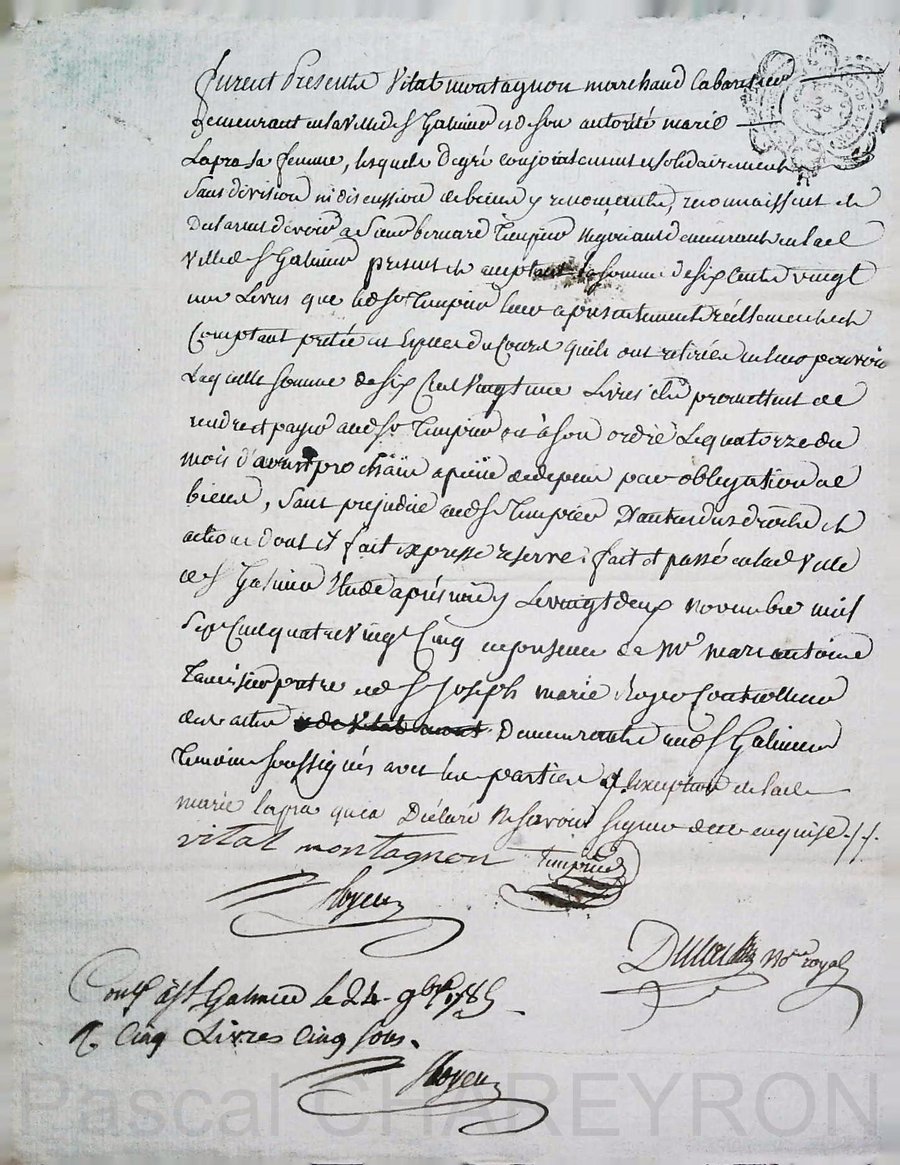 furent Présents Vital montagnon marchand Cabaretier
Demeurant en la ville de St Galmier et de son autorité marie
Lapra sa femme, lesquels de gré conjointement et solidairement
sans division ni discussion de biens y renoncants, reconnaissent et
devoir a Sieur bernard Timpier négociant demeurant en lad
Ville de St Galmier présent et acceptant la somme de six cents vingt
une Livres que led Sr Timpier leur a présentement réellement et
Comptant pretée en Espèces du Cours quils ont retirées en leur pouvoir
Laquelle somme de six Cent Vingt une Livres promettent de
rendre et payer aud Sr Timpier ou à son ordre Le quatorze du
mois d'avril prochain a peine de depens par obligation de
biens, Sans préjudice aud Sr Timpier D'autres dus droits et
actions dont il fait expresse réserve ; fait et passé en lad Ville
de St Galmier Etude après midy Le vingt deux novembre mil
Sept Cent quatre Vingt Cinq en présence de Mr marc antoine
et de Sr Joseph marie Royer Controlleur
des actes Demeurants aud St Galmier
Témoins soussignés avec les parties a l'exception de lad
marie lapra qui a Déclaré ne savoir signer de ce enquise ././.
vital montagnon Timpier
Royer
Nore royal
Conlé à St Galmier le 24 9bre 1785
R. Cinq Livres Cinq sous.
Royer
Pascal CHAREYRON